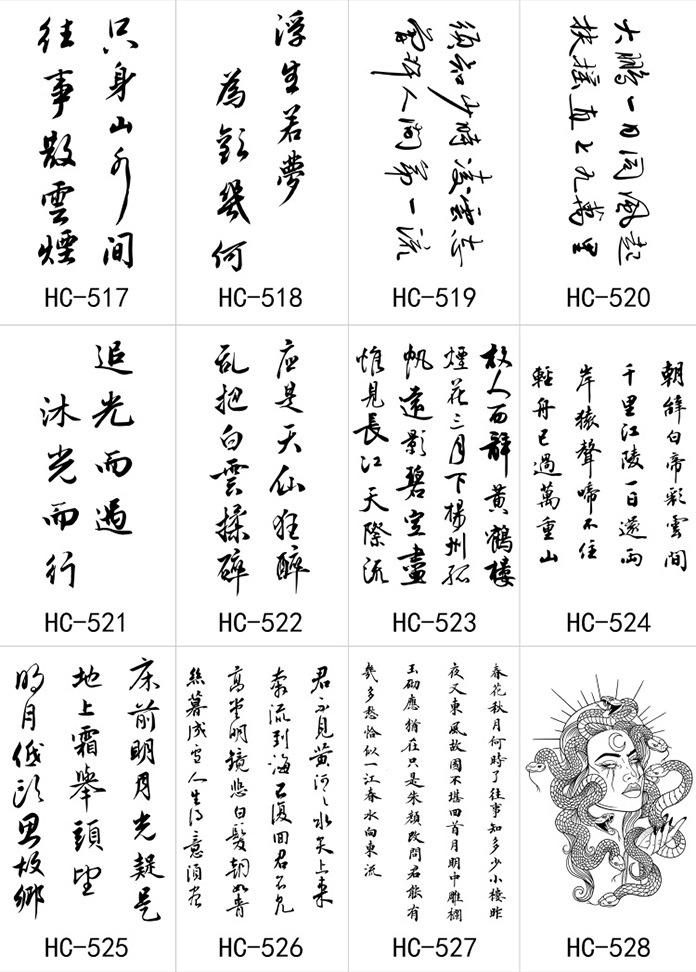 只身山外間
往事散雲煙
HC-517
浮生若夢
為歡幾何
HC-518
須知少時凌雲志
曾許人間第一流
HC-519
大鵬一日同風起
扶搖直上九萬里
HC-520
追光而遇
沐光而行
HC-521
应是天仙狂醉
乱把白雲揉碎
HC-522
故人西辭黃鶴樓
煙花三月下揚州孤
帆遠影碧空盡
惟見長江天際流
HC-523
朝辭白帝彩雲間
千里江陵一日還兩
岸猿聲啼不住
輕舟已過萬重山
HC-524
床前明月光疑是
地上霜舉頭望
明月低頭思故鄉
HC-525
君不見黃河之水天上來
奔流到海不復回君不見
高堂明鏡悲白髮朝如青
絲暮成雪人生得意須盡
HC-526
春花秋月何時了往事知多少小樓昨
夜又東風故國不堪回首月明中雕欄
玉砌應猶在只是朱顏改問君能有
幾多愁恰似一江春水向東流
HC-527
HC-528